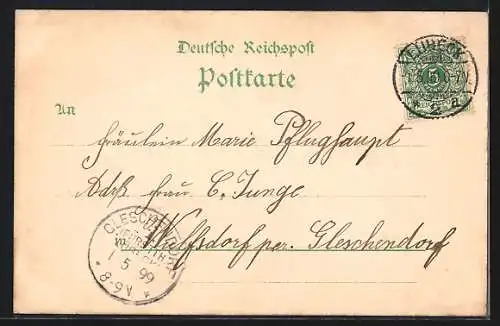 Deutsche Reichspost
Postkarte
LUEBECK
5
* 2 a
An
Fräulein Marie Pflughaupt
Adrß. Frau C. Junge
Wulfsdorf per. Gleschendorf
GLESCHENDORF
1 5 99
* 8-9V *